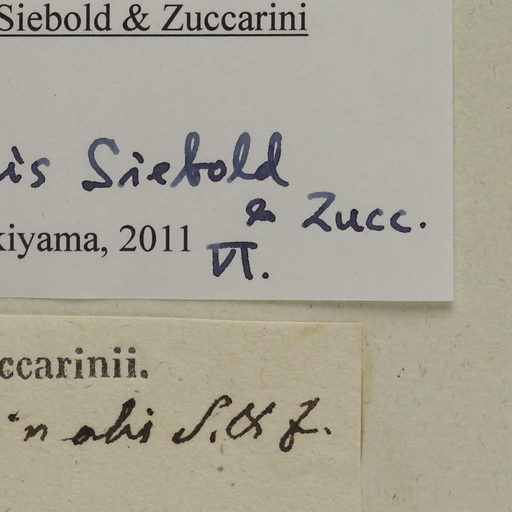 Siebold & Zuccarini
is Siebold
& Zucc.
kiyama, 2011 VI.
ccarinii.
inalis S. & Z.